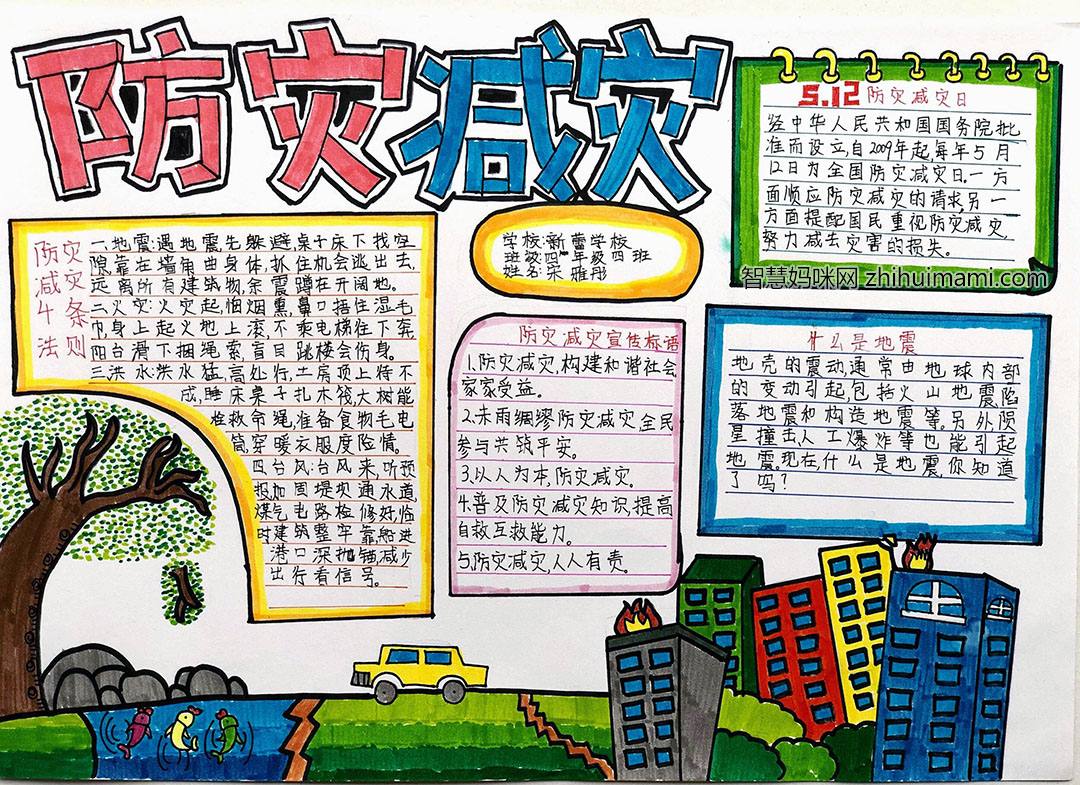 防灾减灾
5.12防灾减灾日
经中华人民共和国国务院批
准而设立,自2009年起,每年5月
12日为全国防灾减灾日.一方
面顺应防灾减灾的请求,另一
方面提配国民重视防灾减灾
努力减去灾害的损失。
智慧妈咪网 zhihuimami.com
防灾
减灾
4条
法则
一.地震:遇地震先躲避桌子床下找空
隙靠在墙角曲身体,抓住机会逃出去,
远离所有建筑物,余震蹲在开阔地。
二.火灾:火灾起,怕烟熏,鼻口捂住湿毛
巾身上起火地上滚,不乘电梯往下奔,
阳台滑下捆绳索,盲目跳楼会伤身。
三洪水:洪水猛,高处行,土房顶上待不
成,睡床桌子扎木筏,大树能
准救命绳,准备食物毛电
筒,穿暖衣服度险情。
四台风:台风来,听预
报加固堤坝通水道,
煤气电路检修好,临
时建筑整牢靠,船进
港口深抛锚,减少
出行看信号。
学校:新蕾学校
班级:四年级四班
姓名:宋雅彤
防灾减灾宣传标语
1.防灾减灾,构建和谐社会
家家受益。
2.未雨绸缪防灾减灾全民
参与共筑平安。
3.以人为本,防灾减灾。
4.普及防灾减灾知识,提高
自救互救能力。
5.防灾减灾,人人有责。
什么是地震
地壳的震动,通常由地球内部
的变动引起,包括火山地震陷
落地震和构造地震等.另外陨
星撞击人工爆炸等也能引起
地震.现在,什么是地震,你知道
了吗?